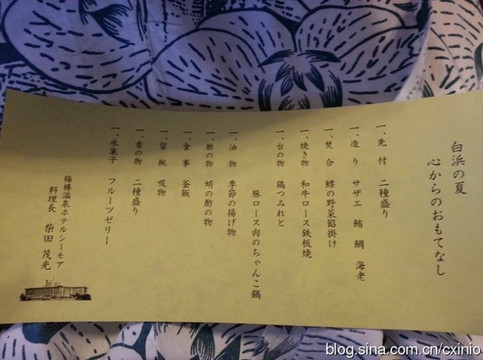 白浜の夏
心からのおもてなし
一、先 付 二種盛り
一、造 り サザエ 鮪 鯛 海老
一、焚 合 鰈の野菜餡掛け
一、焼き物 和牛ロース鉄板焼
一、台の物 鶏つみれと
豚ロース肉のちゃんこ鍋
一、油 物 季節の揚げ物
一、酢の物 蛸の酢の物
一、食 事 釜飯
一、留 椀 吸物
一、香の物 二種盛り
一、水菓子 フルーツゼリー
椿温泉ホテルシーモア
料理長 柴田 茂光
blog.sina.com.cn/cxinio